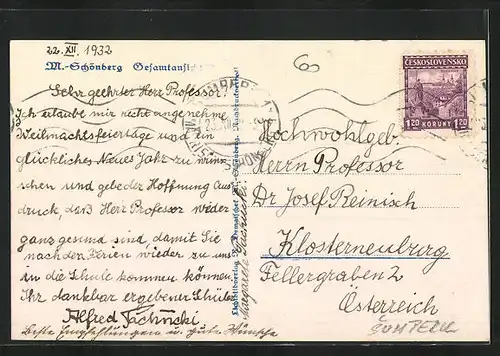 22. XII. 1932
M.-Schönberg Gesamtansi
Sehr geehrter Herr Professor!
Ich erlaube mir recht angenehme
Weihnachtsfeiertage und ein
glückliches Neues Jahr zu wün-
schen und gebe der Hoffnung Aus
druck, daß Herr Professor wieder
ganz gesund sind, damit Sie
nach den Ferien wieder zu uns
in die Schule kommen können
Ihr dankbar ergebener Schüler
Alfred
Beste Empfehlungen u. gute Wünsche
Margarete
ČESKOSLOVENSKO
1.20 KORUNY 1.20
Hochwohlgeb.
Herrn Professor
Dr Josef Reinisch
Klosterneuburg
Fellergraben 2
Österreich